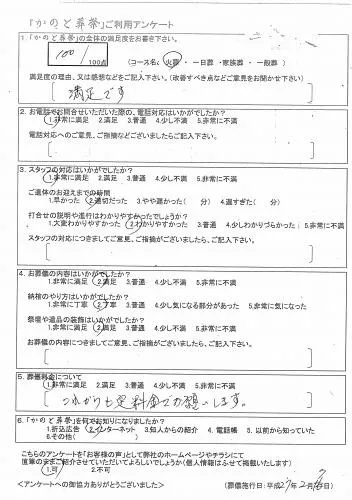 「かのと葬祭」ご利用アンケート
1.「かのと葬祭」の全体の満足度をお書き下さい。
100/100点 (コース名 火葬・一日葬・家族葬・一般葬)
満足度の理由、又は感想などをご記入下さい。(改善すべき点などご意見をお聞かせ下さい)
満足です
2.お電話でお問合せいただいた際の、電話対応はいかがでしたか?
1.非常に満足 2.満足 3.普通 4.少し不満 5.非常に不満
電話対応へのご意見、ご指摘などございましたらご記入下さい。
3.スタッフの対応はいかがでしたか?
1.非常に満足 2.満足 3.普通 4.少し不満 5.非常に不満
ご遺体のお迎えまでの時間
1.早かった 2.適切だった 3.やや遅かった( 分) 4.遅すぎた( 分)
打合せの説明や進行はわかりやすかったでしょうか?
1.大変わかりやすかった 2.わかりやすかった 3.普通 4.少しわかりづらかった 5.非常に不満
スタッフの対応につきましてご意見、ご指摘がございましたら、ご記入下さい。
4.お葬儀の内容はいかがでしたか?
1.非常に満足 2.満足 3.普通 4.少し不満 5.非常に不満
納棺のやり方はいかがでしたか?
1.非常に丁寧 2.丁寧 3.普通 4.少し気になる部分があった 5.非常に気になった
祭壇や道品の装飾はいかがでしたか?
1.非常に満足 2.満足 3.普通 4.少し不満 5.非常に不満
お葬儀の内容につきましてご意見、ご指摘がございましたら、ご記入下さい。
5.葬儀料金について
1.非常に満足 2.満足 3.普通 4.少し不満 5.非常に不満
これからも定料金でお願いします。
6.「かのと葬祭」を何でお知りになりましたか?
1.折込広告 2.インターネット 3.知人からの紹介 4.電話帳 5.以前から知っていた
6.その他( )
こちらのアンケートを「お客様の声」として弊社のホームページやチラシにて
直筆のままご紹介させていただいてよろしいでしょうか(個人情報はふせて掲載いたします)
1.可 2.不可
<アンケートへの御協力ありがとうございました> (葬儀施行日:平成27年2月 日)